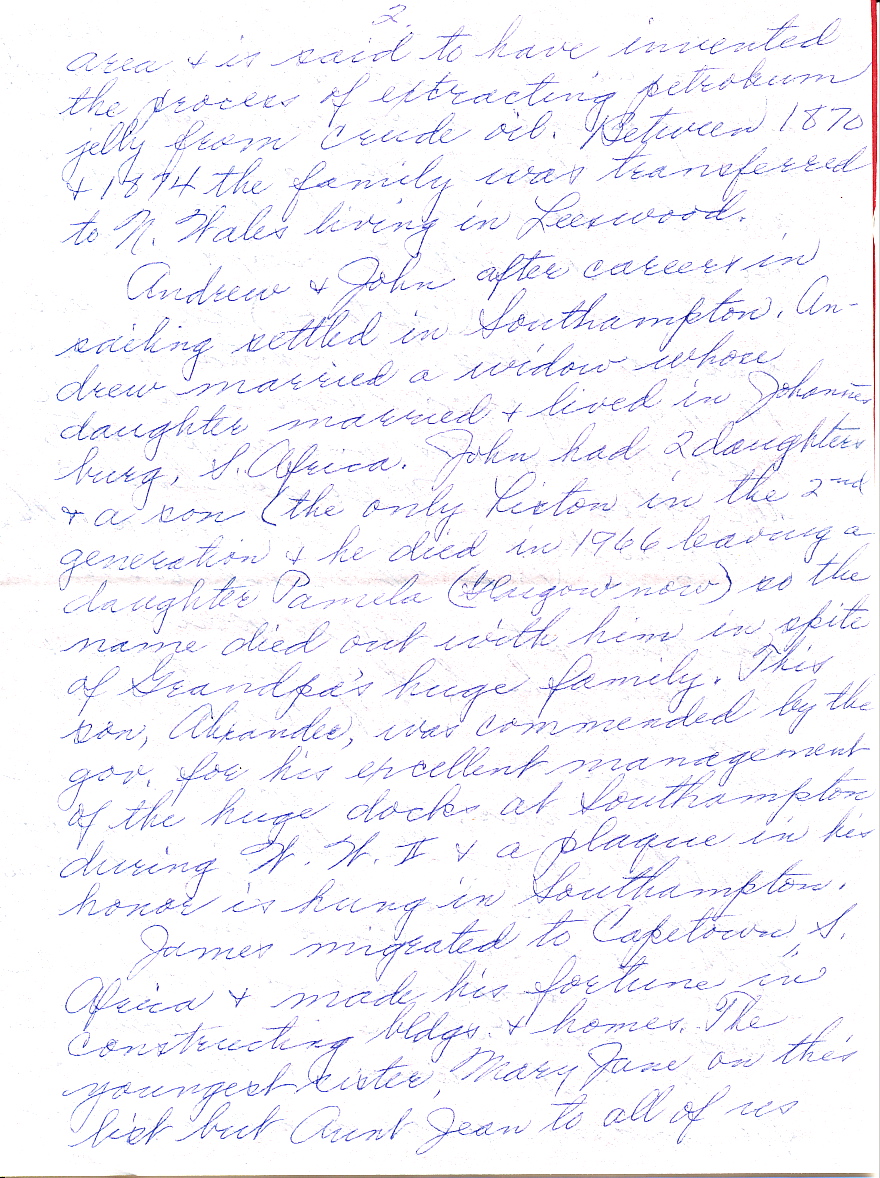 2.
area + is said to have invented
the process of extracting petroleum
jelly from crude oil. Between 1870
+ 1874 the family was transferred
to N. Wales living in Leeswood.
Andrew & John after careers in
sailing settled in Southampton. An-
drew married a widow whose
daughter married & lived in Johannes
burg, S. Africa. John had 2 daughters
& a son (the only Liston in the 2nd
generation & he died in 1966 leaving a
daughter Pamela (Glasgow now) so the
name died out with him in spite
of Grandpa's huge family. This
son, Alexander, was commended by the
gov. for his excellent management
of the huge docks at Southampton
during W. W. II & a plaque in his
honor is hung in Southampton.
James migrated to Capetown, S.
Africa & made his fortune in
constructing bldgs. & homes. The
youngest sister, Mary Jane on this
list but Aunt Jean to all of us